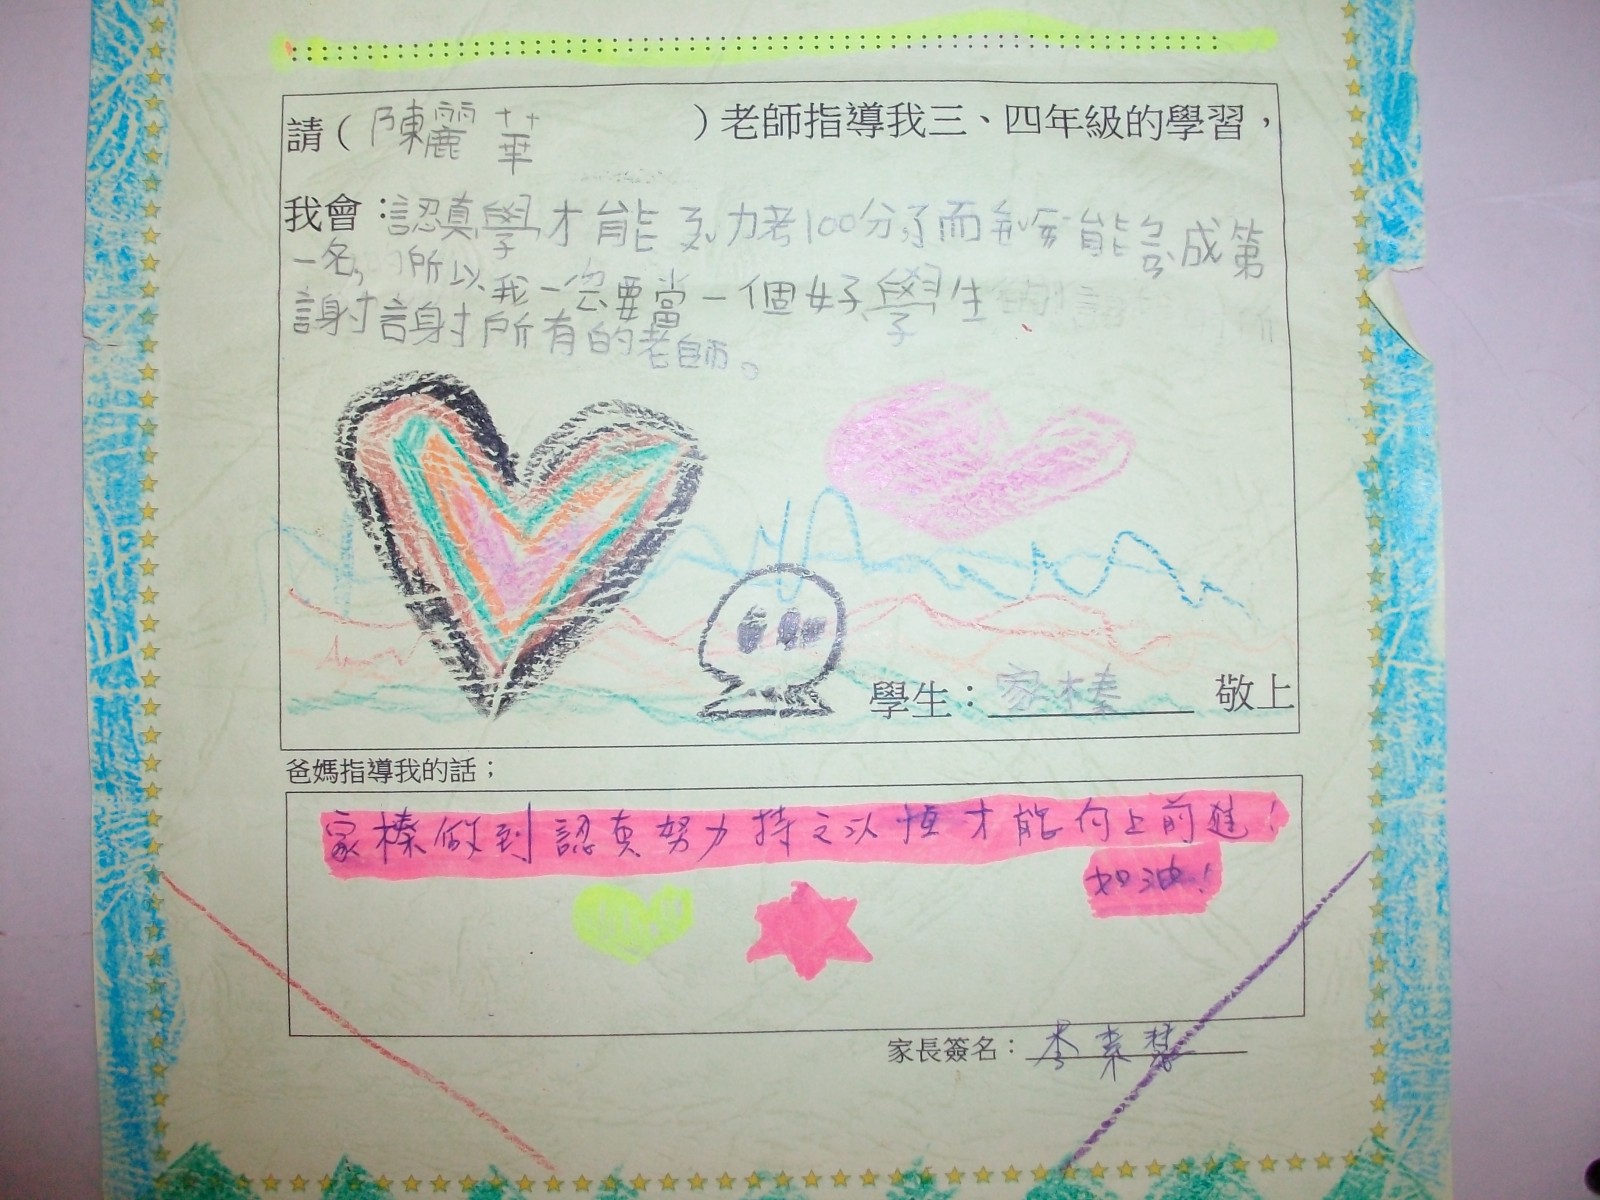 請（陳麗華）老師指導我三、四年級的學習，
我會：認真學才能努力考100分,了而每能成第
一名,所以我一定要當一個好學生
謝謝所有的老師。
學生：家榛 敬上
爸媽指導我的話；
家榛做到認真努力持之以恆才能向上前進！
加油！
家長簽名：李素慧